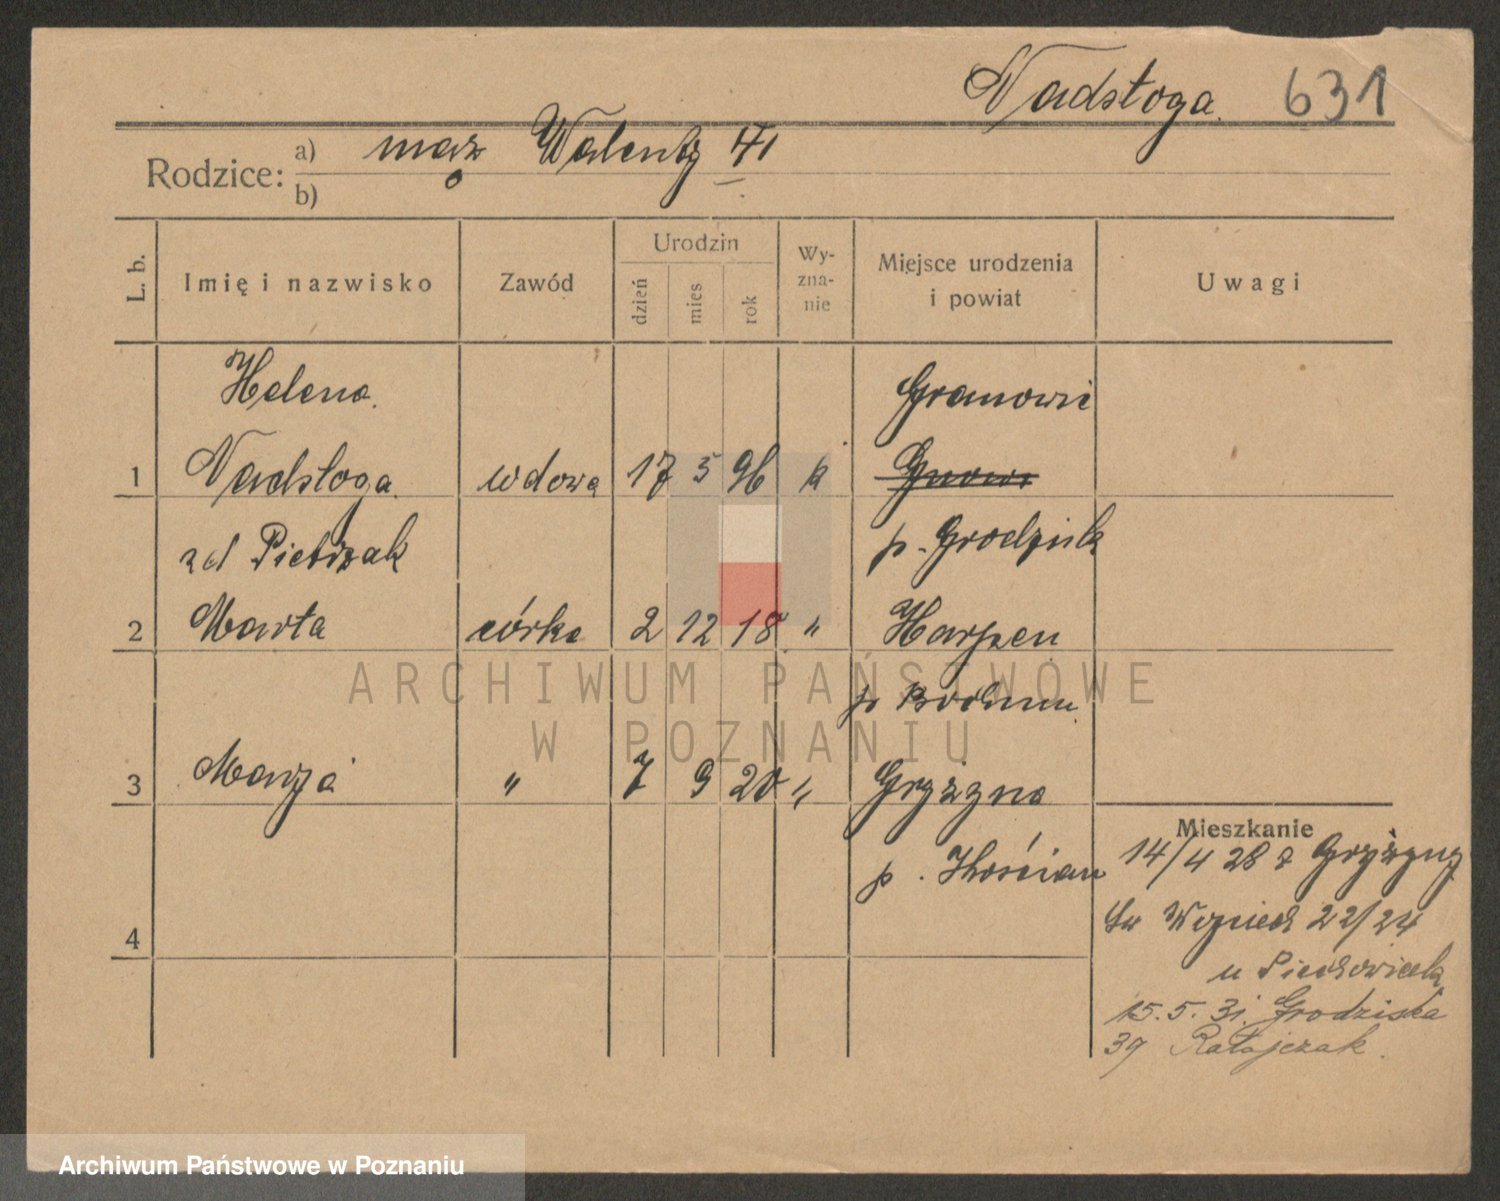 Nadstoga 631
Rodzice: a) mąż Walenty
b)
L. b.
Imię i nazwisko
Zawód
Urodzin
dzień
mies
rok
Wy-
zna-
nie
Miejsce urodzenia
i powiat
Uwagi
Helena
Granowie
1 Nadstoga wdowa 17 5 96 k
zd Pietrzak p. Grodzisk
2 Marta córka 2 12 18 " Harpen
p Bochum
3 Marja " 7 9 20 " Gryżyna
p. Kościan
4
Mieszkanie
14/4 28 z Gryżyny
Św Wojciech 22/24
u
15.5.31. Grodziska
39 Ratajczak.
ARCHIWUM PAŃSTWOWE
W POZNANIU
Archiwum Państwowe w Poznaniu